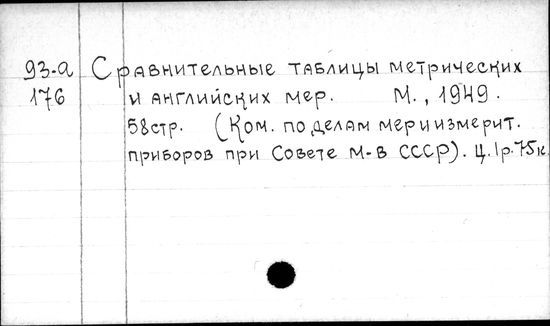 93-а Сравнительные таблицы метрических
176 и английских мер. М., 1949.
58стр. (Ком. по делам мер и измерит.
приборов при Совете М-в СССР). Ц. 1р.75к.